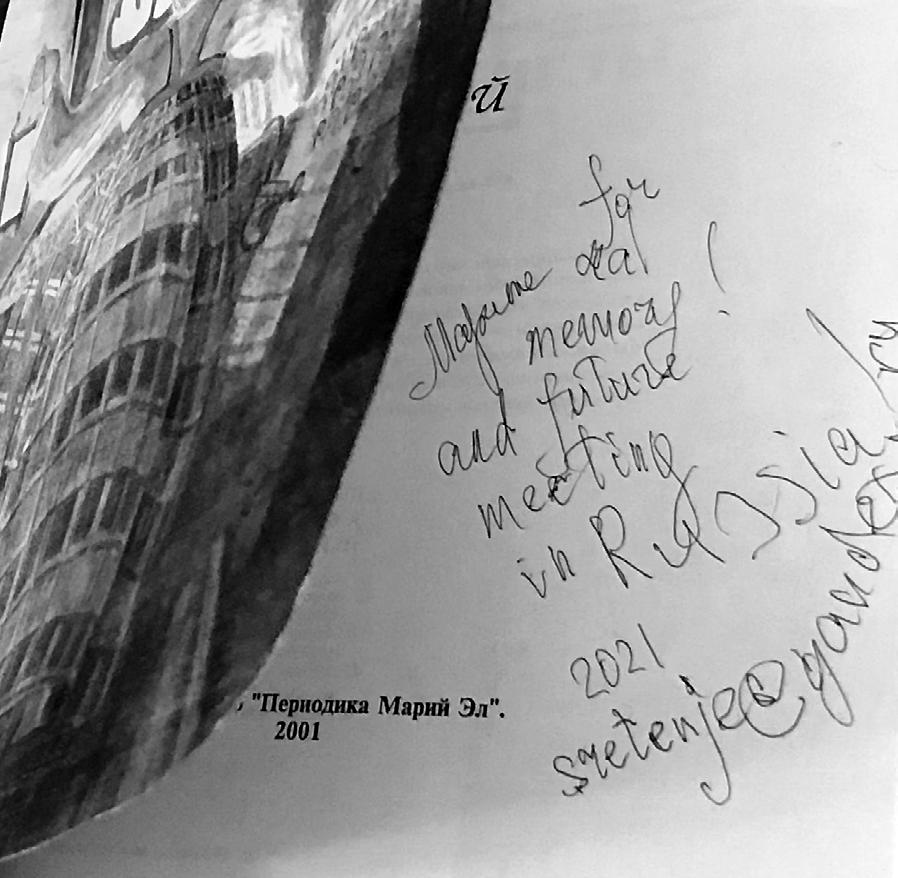 й
for
memory!
and future
meeting
in Russia!
2021
sretenje@yandex.ru
, "Периодика Марий Эл".
2001